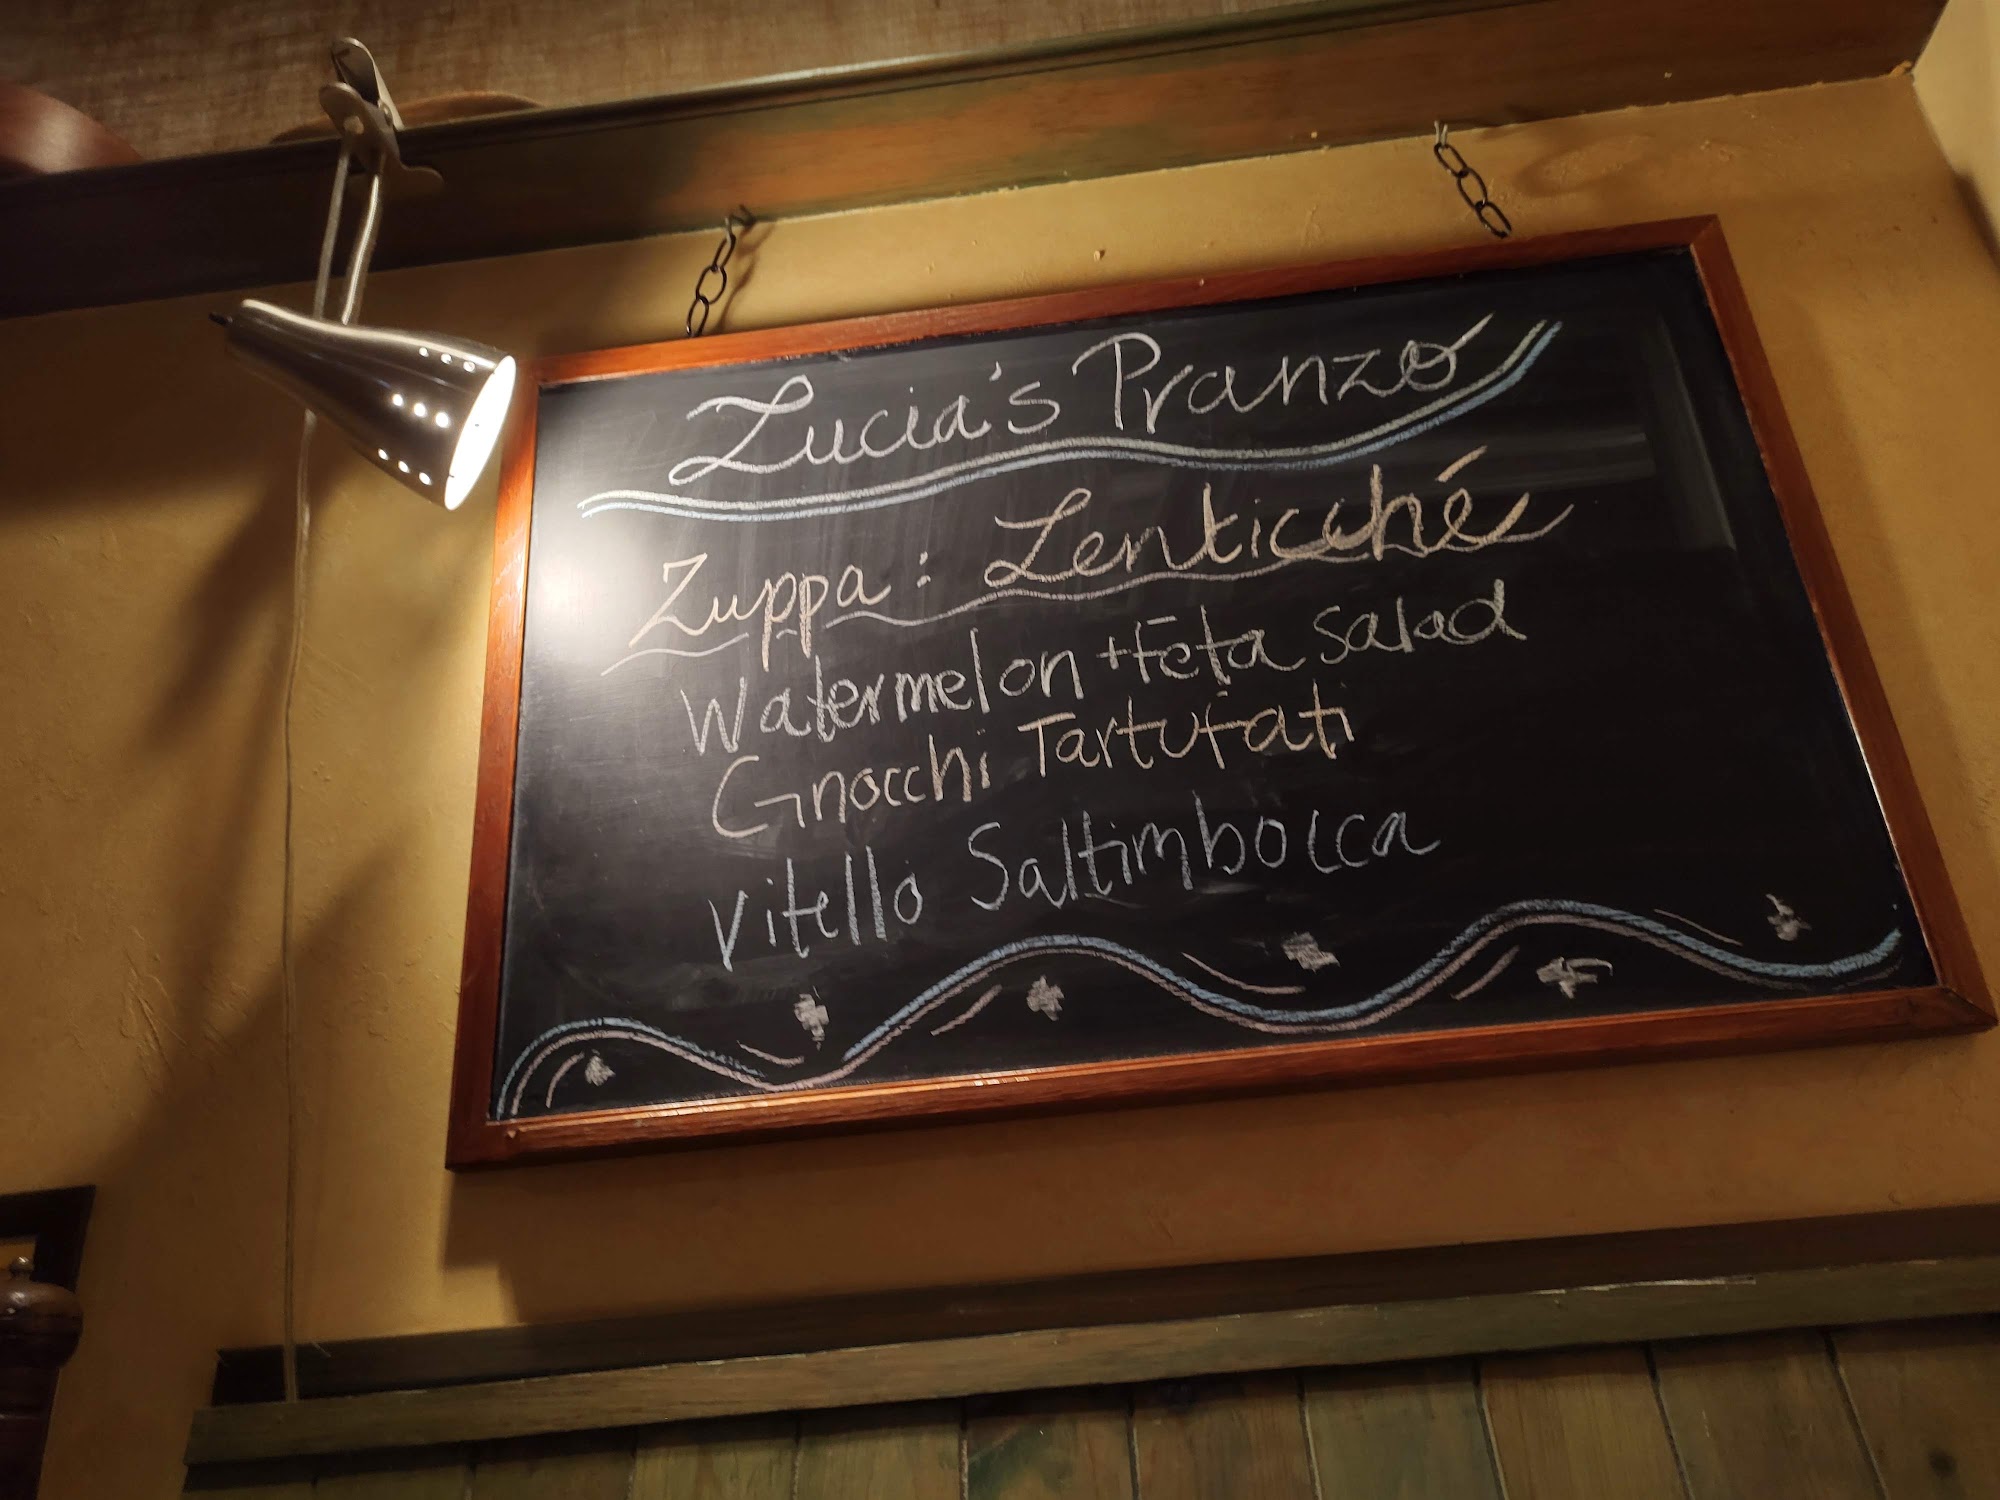 Lucia's Pranzo
Zuppa: Lenticché
Watermelon + Feta Salad
Gnocchi Tartufati
Vitello Saltimbocca